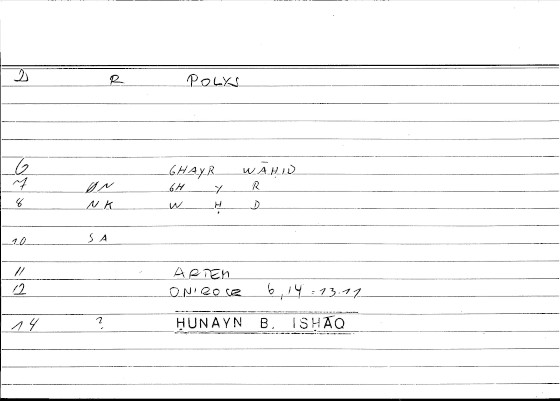 2 R POLYS
6 GHAYR WĀḤID
7 ØN GH Y R
8 NK W Ḥ D
10 SA
11 ARTEM
12 ONIROCR 6,14 = 13.11
14 ? ḤUNAYN B. ISḤĀQ